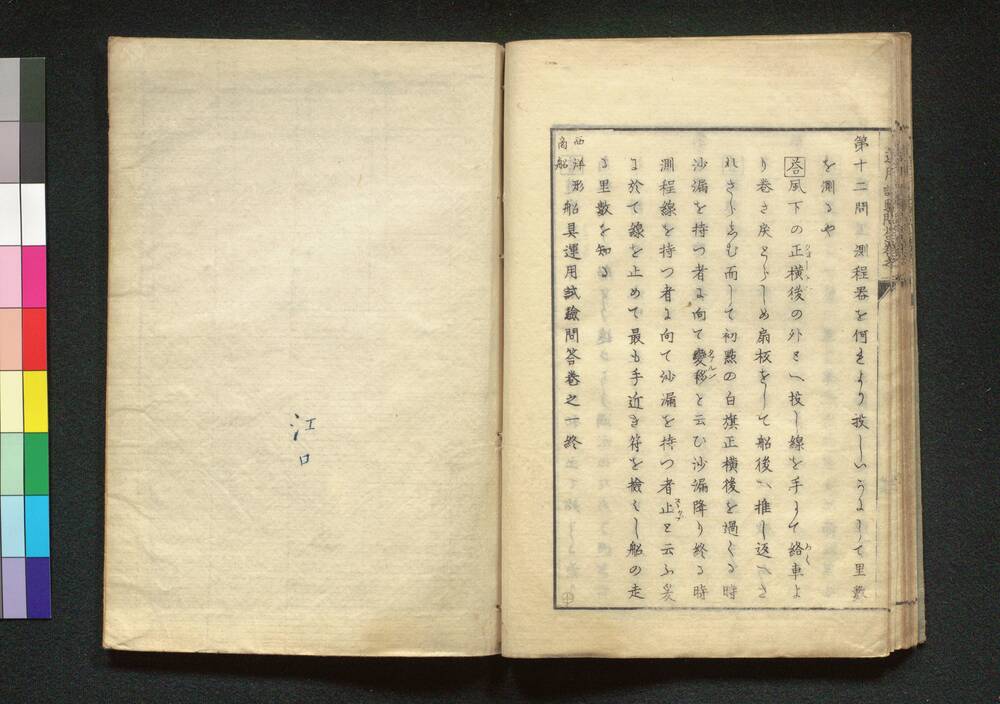 第十二問 測程器を何をより投しいかにして里数
を測るや
答 風下の正横後の外と へ投し線を手にて絡車よ
り巻き戻さしめ扇板をして船後へ推し返へさ
れさらしむ而して初点の白旗正横後を過くる時
沙漏を持つ者に向て変移と云ひ沙漏降り終る時
測程線を持つ者に向て沙漏を持つ者止と云ふ爰
に於て線を止めて最も手近き符を検くし船の走
る里数を知る
西洋形商船 船具運用試験問答巻之一終
江口